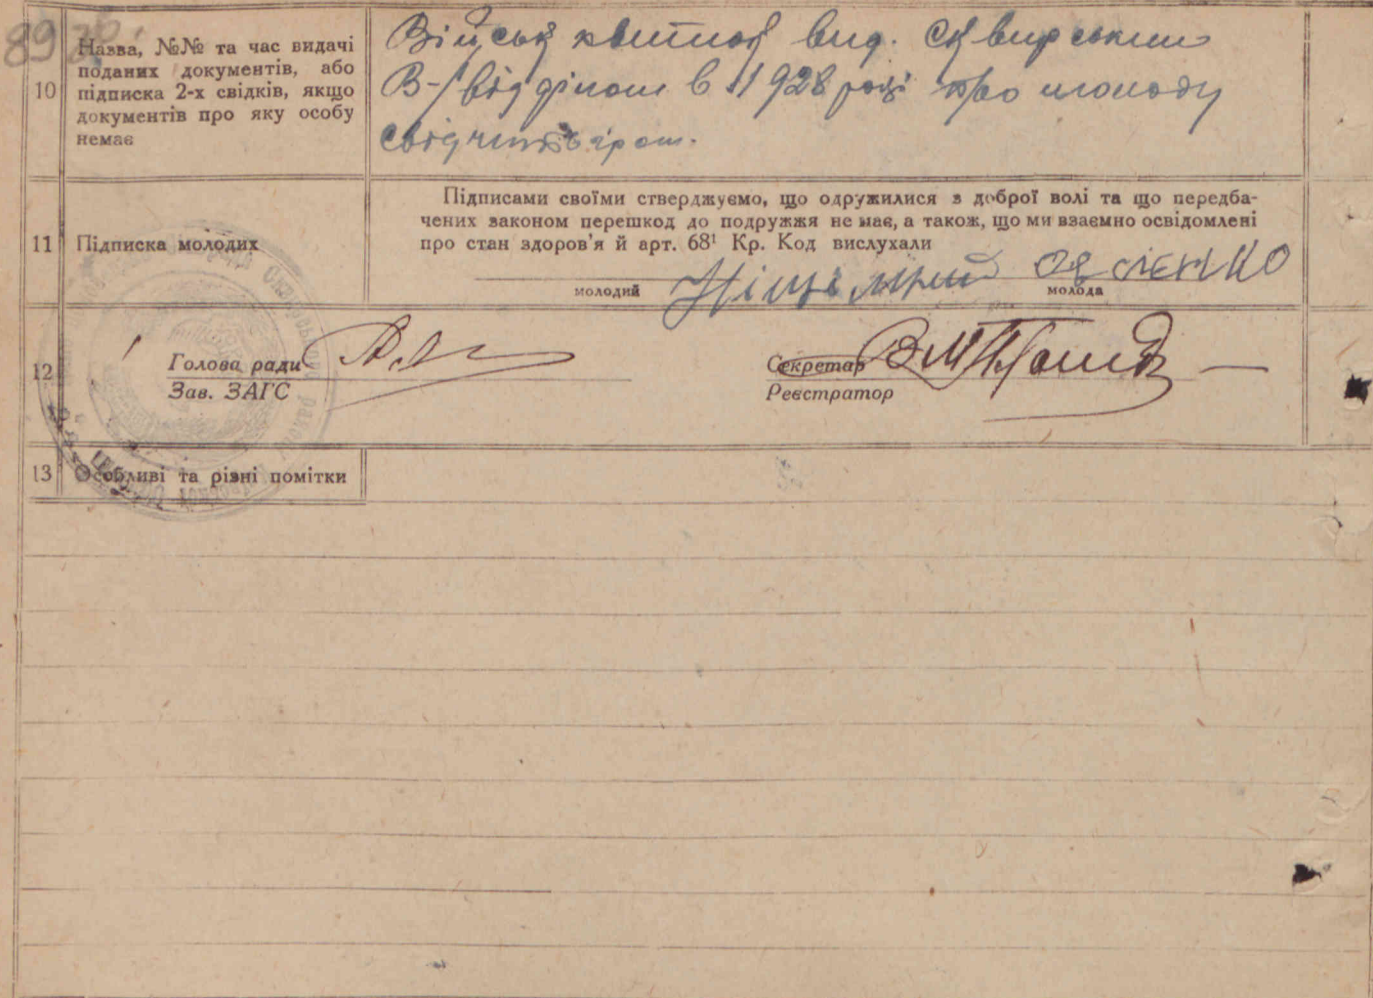 89 зв.
10 Назва, №№ та час видачі поданих документів, або підписка 2-х свідків, якщо документів про яку особу немає
Військ квиток вид. Сквирським
В-/відділом в 1928 році про молоду
свідчить гром.
11 Підписка молодих
Підписами своїми стверджуємо, що одружилися з доброї волі та що передба-
чених законом перешкод до подружжя не має, а також, що ми взаємно освідомлені
про стан здоров'я й арт. 68¹ Кр. Код вислухали
молодий
молода
12 Голова ради
Зав. ЗАГС
Секретар
Реєстратор
13 Особливі та різні помітки